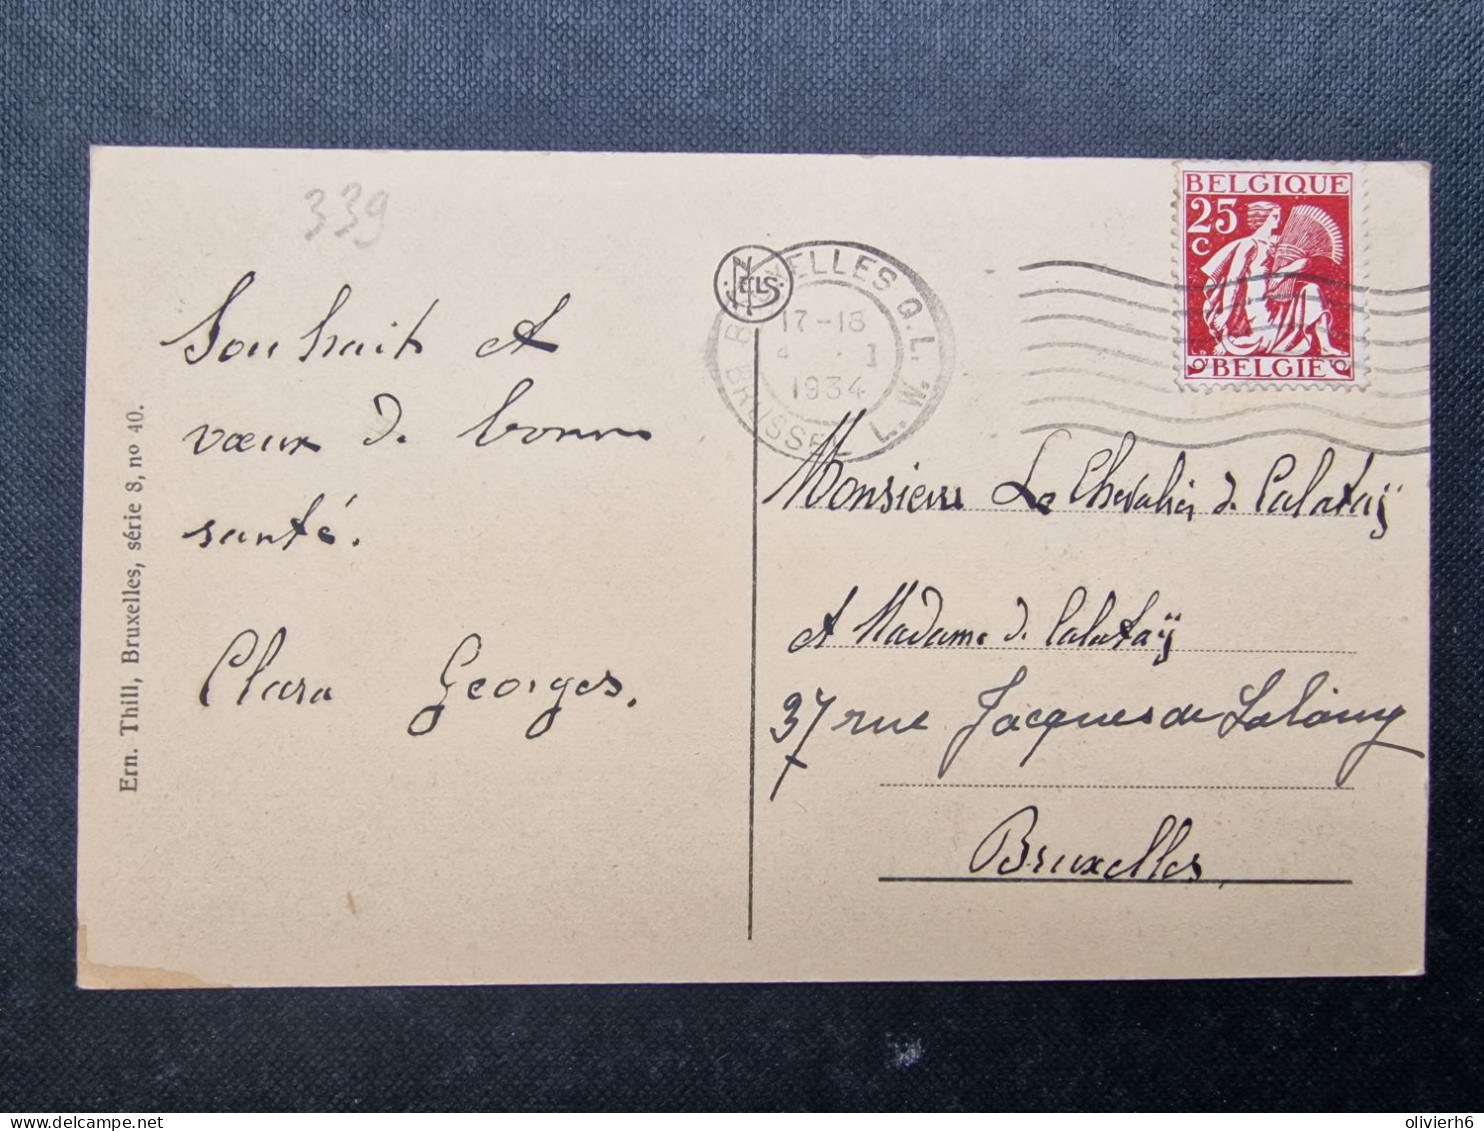 339
Souhait et
vœux de bonne
santé.
Clara Georges.
Ern. Thill, Bruxelles, série 8, no 40.
NELS
BRUXELLES Q.L.
17-18
4 . I
1934
BRUSSEL L.W.
BELGIQUE
25
C
BELGIE
Monsieur Le Chevalier de Calataÿ
et Madame de Calataÿ
37 rue Jacques de Lalaing
Bruxelles
olivierh6